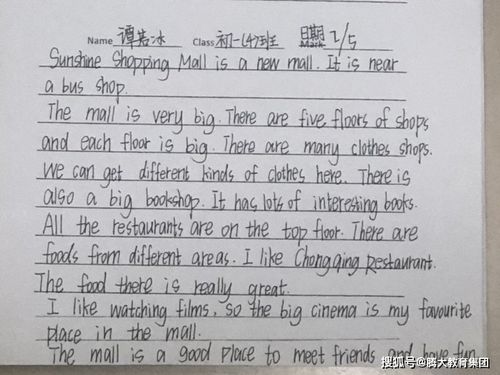 Name 谭茗冰 Class 初一(4)班 日期 2/5
Sunshine Shopping Mall is a new mall. It is near
a bus shop.
The mall is very big. There are five floors of shops
and each floor is big. There are many clothes shops.
We can get different kinds of clothes here. There is
also a big bookshop. It has lots of interesting books.
All the restaurants are on the top floor. There are
foods from different areas. I like Chongqing Restaurant.
The food there is really great.
I like watching films, so the big cinema is my favourite
place in the mall.
The mall is a good place to meet friends and have fun
搜狐号@腾大教育集团